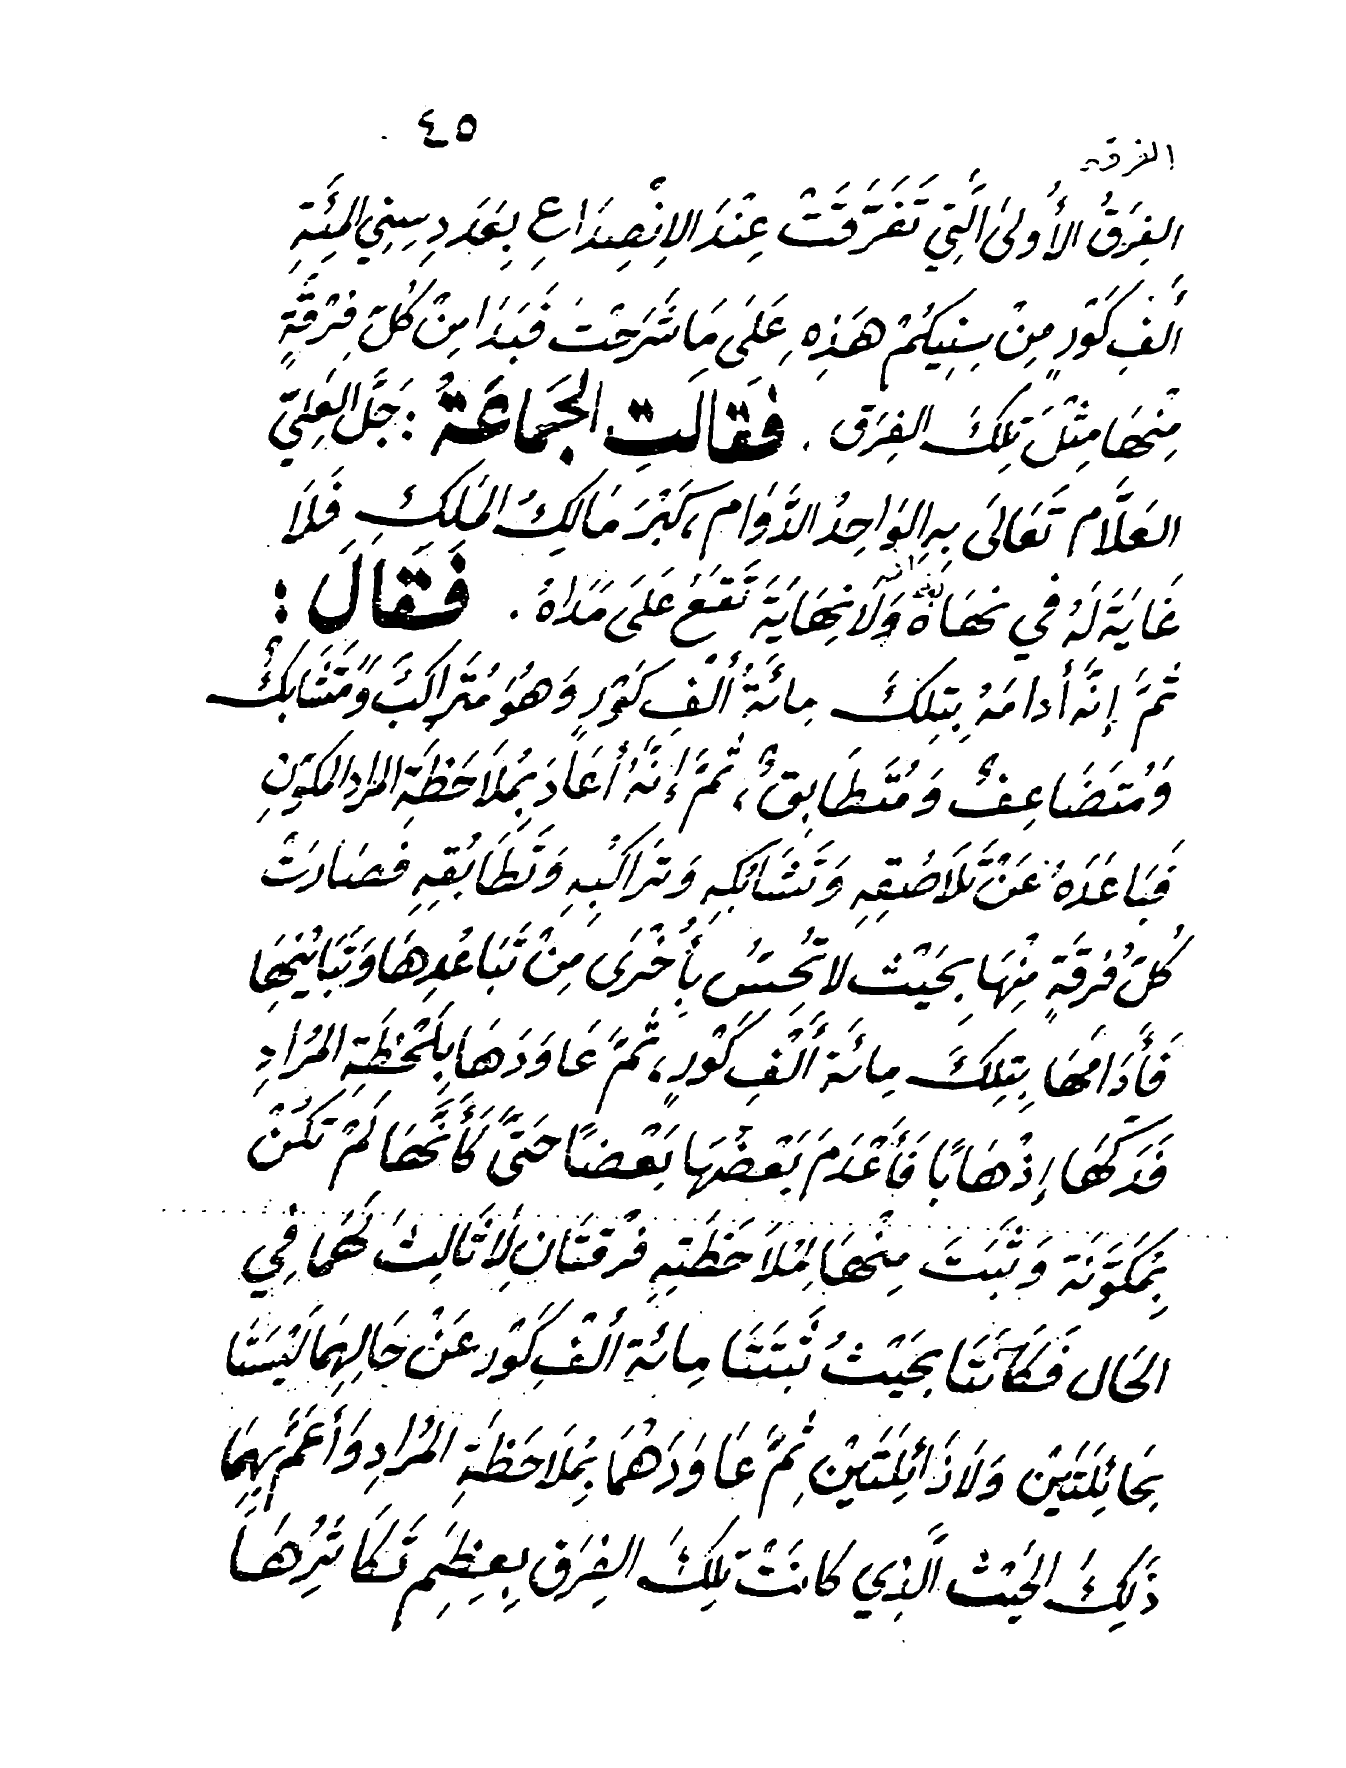 ٤٥
الفرقه
الفِرَقُ الأُولىٰ الَّتِي تَفَرَّقَتْ عِنْدَ الاِنْصِدَاعِ بِعَدَدِ سِنِي المِئَةِ
أَلفِ كَوْرٍ مِنْ سِنِيكُمْ هَذِهِ عَلَى مَا شَرَحْتَ فَبَدَا مِنْ كُلِّ فِرْقَةٍ
مِنْهَا مِثْلَ تِلكَ الفِرَقِ . فَقَالَتِ الجَمَاعَةُ : جَلَّ العَلِيّ
العَلَّام تَعَالَى بِهِ الوَاحِدُ الدَّوَام، كَبُرَ مَالِكُ المَلِكِ فَلَا
غَايَةَ لَهُ فِي نهَاهُ وَلَا نِهَايَةَ تَقَعُ عَلَى مَدَاهُ . فَقَالَ :
ثُمَّ إِنَّه أَدامَهُ بِتِلكَ مِائَةَ أَلْفِ كَوْرٍ وَهُوَ مُتَراكِبٌ وَمُتَشَابِكٌ
وَمُتَضَاعِفٌ وَمُتَطَابِقٌ، ثُمَّ إِنَّهُ أَعَادَ بِمُلَاحَظَةِ المُرادِ المكَوَّنِ
فَبَاعَدَهُ عَنْ تَلَاصُقِهِ وَتَشَابُكِهِ وَتَراكُبِهِ وَتَطَابُقِهِ فَصَارَتْ
كُلُّ فُرقَةٍ مِنْهَا بِحَيْث لا تُحِسُّ بِأُخْرَى مِنْ تَبَاعُدِهَا وَتَبَايُنِهَا
فَأَدَامَهَا بِتِلكَ مِائَة أَلْفِ كَوْرٍ، ثُمَّ عَاوَدَهَا بِلَحْظَةِ المُرَادِ
فَدَكَّهَا إِذْهَابًا فَأَعْدَمَ بَعْضُهَا بَعْضًا حَتَّى كَأَنَّهَا لَمْ تَكُنْ
بِمُكَوَّنَة وَثَبَتَ مِنْهَا لِمُلَاحَظَتِهِ فرْقَتَانِ لَا ثَالِثَ لَهُمَا فِي
الحَالِ فَكَانَتَا بِحَيْثُ ثَبَتَتَا مِائَة أَلْفِ كَوْر عَنْ حَالِهِمَا لَيْسَتَا
بِحَائِلَتَيْنِ وَلَا زَائِلَتَيْنِ ثُمَّ عَاوَدَهُمَا بِمُلَاحَظَةِ المُرَادِ وَأَعَمَّ بِهِمَا
ذَلِكَ الحَيْث الَّذِي كَانَتْ تِلكَ الفِرَق بِعِظَمِ تَكَاثُرِهَا